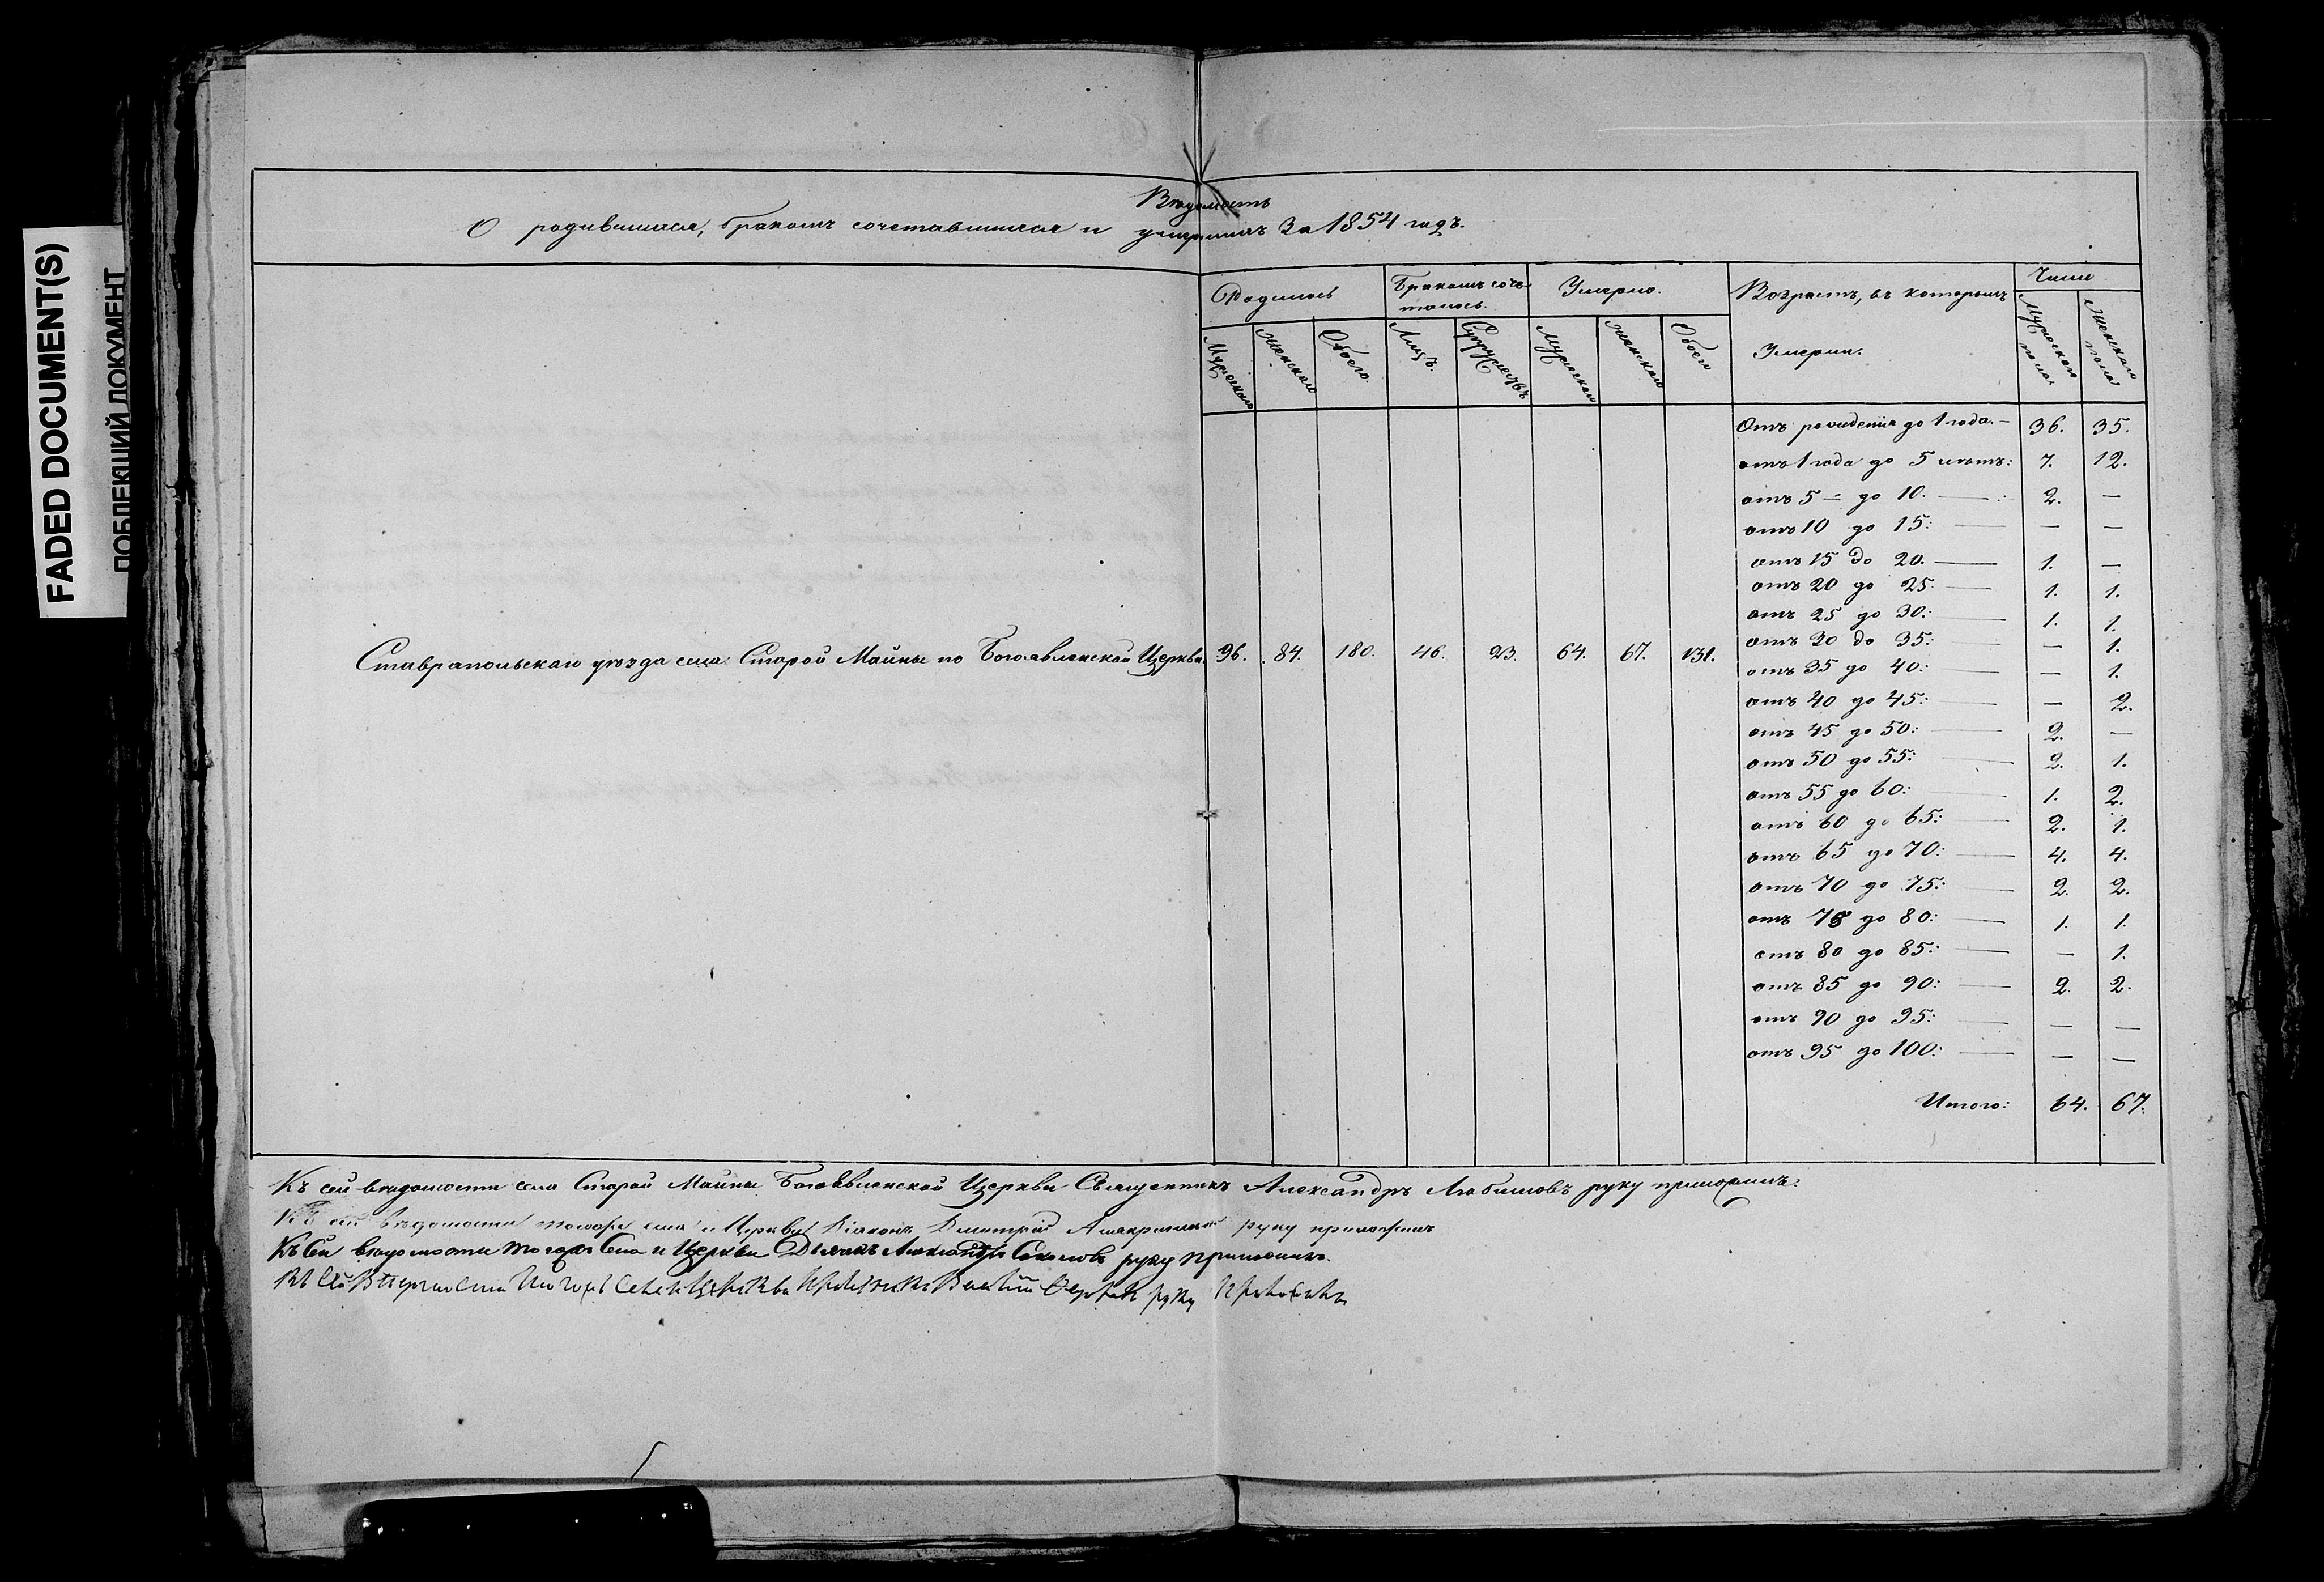 FADED DOCUMENT(S)
ПОБЛЕКШИЙ ДОКУМЕНТ
Вѣдомость
О родившихся, бракомъ сочетавшихся и умершихъ За 1854 годъ.
Родилось
Бракомъ соче-
талось.
Умерло.
Возрастъ, въ которомъ
Умерли.
Число
Мужескаго
Женскаго
Обоего.
Лицъ.
Супружествъ
Мужескаго
Женскаго
Обоего
Мужескаго
пола
Женскаго
пола
Отъ рожденія до 1 года.— 36. 35.
отъ 1 года до 5 лѣтъ: 7. 12.
отъ 5 — до 10. — 2. —
отъ 10 до 15: — — —
отъ 15 до 20. — 1. —
отъ 20 до 25: — 1. 1.
отъ 25 до 30: — 1. 1.
отъ 30 до 35: — — 1.
Ставропольскаго уѣзда села Старой Майны по Богоявленской Церкви 96. 84. 180. 46. 23. 64. 67. 131.
отъ 35 до 40: — — 1.
отъ 40 до 45: — — 2.
отъ 45 до 50: — 2. —
отъ 50 до 55: — 2. 1.
отъ 55 до 60: — 1. 2.
отъ 60 до 65: — 2. 1.
отъ 65 до 70: — 4. 4.
отъ 70 до 75: — 2. 2.
отъ 75 до 80: — 1. 1.
отъ 80 до 85: — — 1.
отъ 85 до 90: — 2. 2.
отъ 90 до 95: — — —
отъ 95 до 100: — — —
Итого: 64. 67.
Къ сей вѣдомости села Старой Майны Богоявленской Церкви Священникъ Александръ Любимовъ руку приложилъ.
Къ сей вѣдомости тогожъ села и Церкви Діаконъ Димитрій руку приложилъ
Къ сей вѣдомости тогожъ Села и Церкви Дьячекъ Александръ Соколовъ руку приложилъ.
Къ сей тогожъ Села и Церкви руку приложилъ